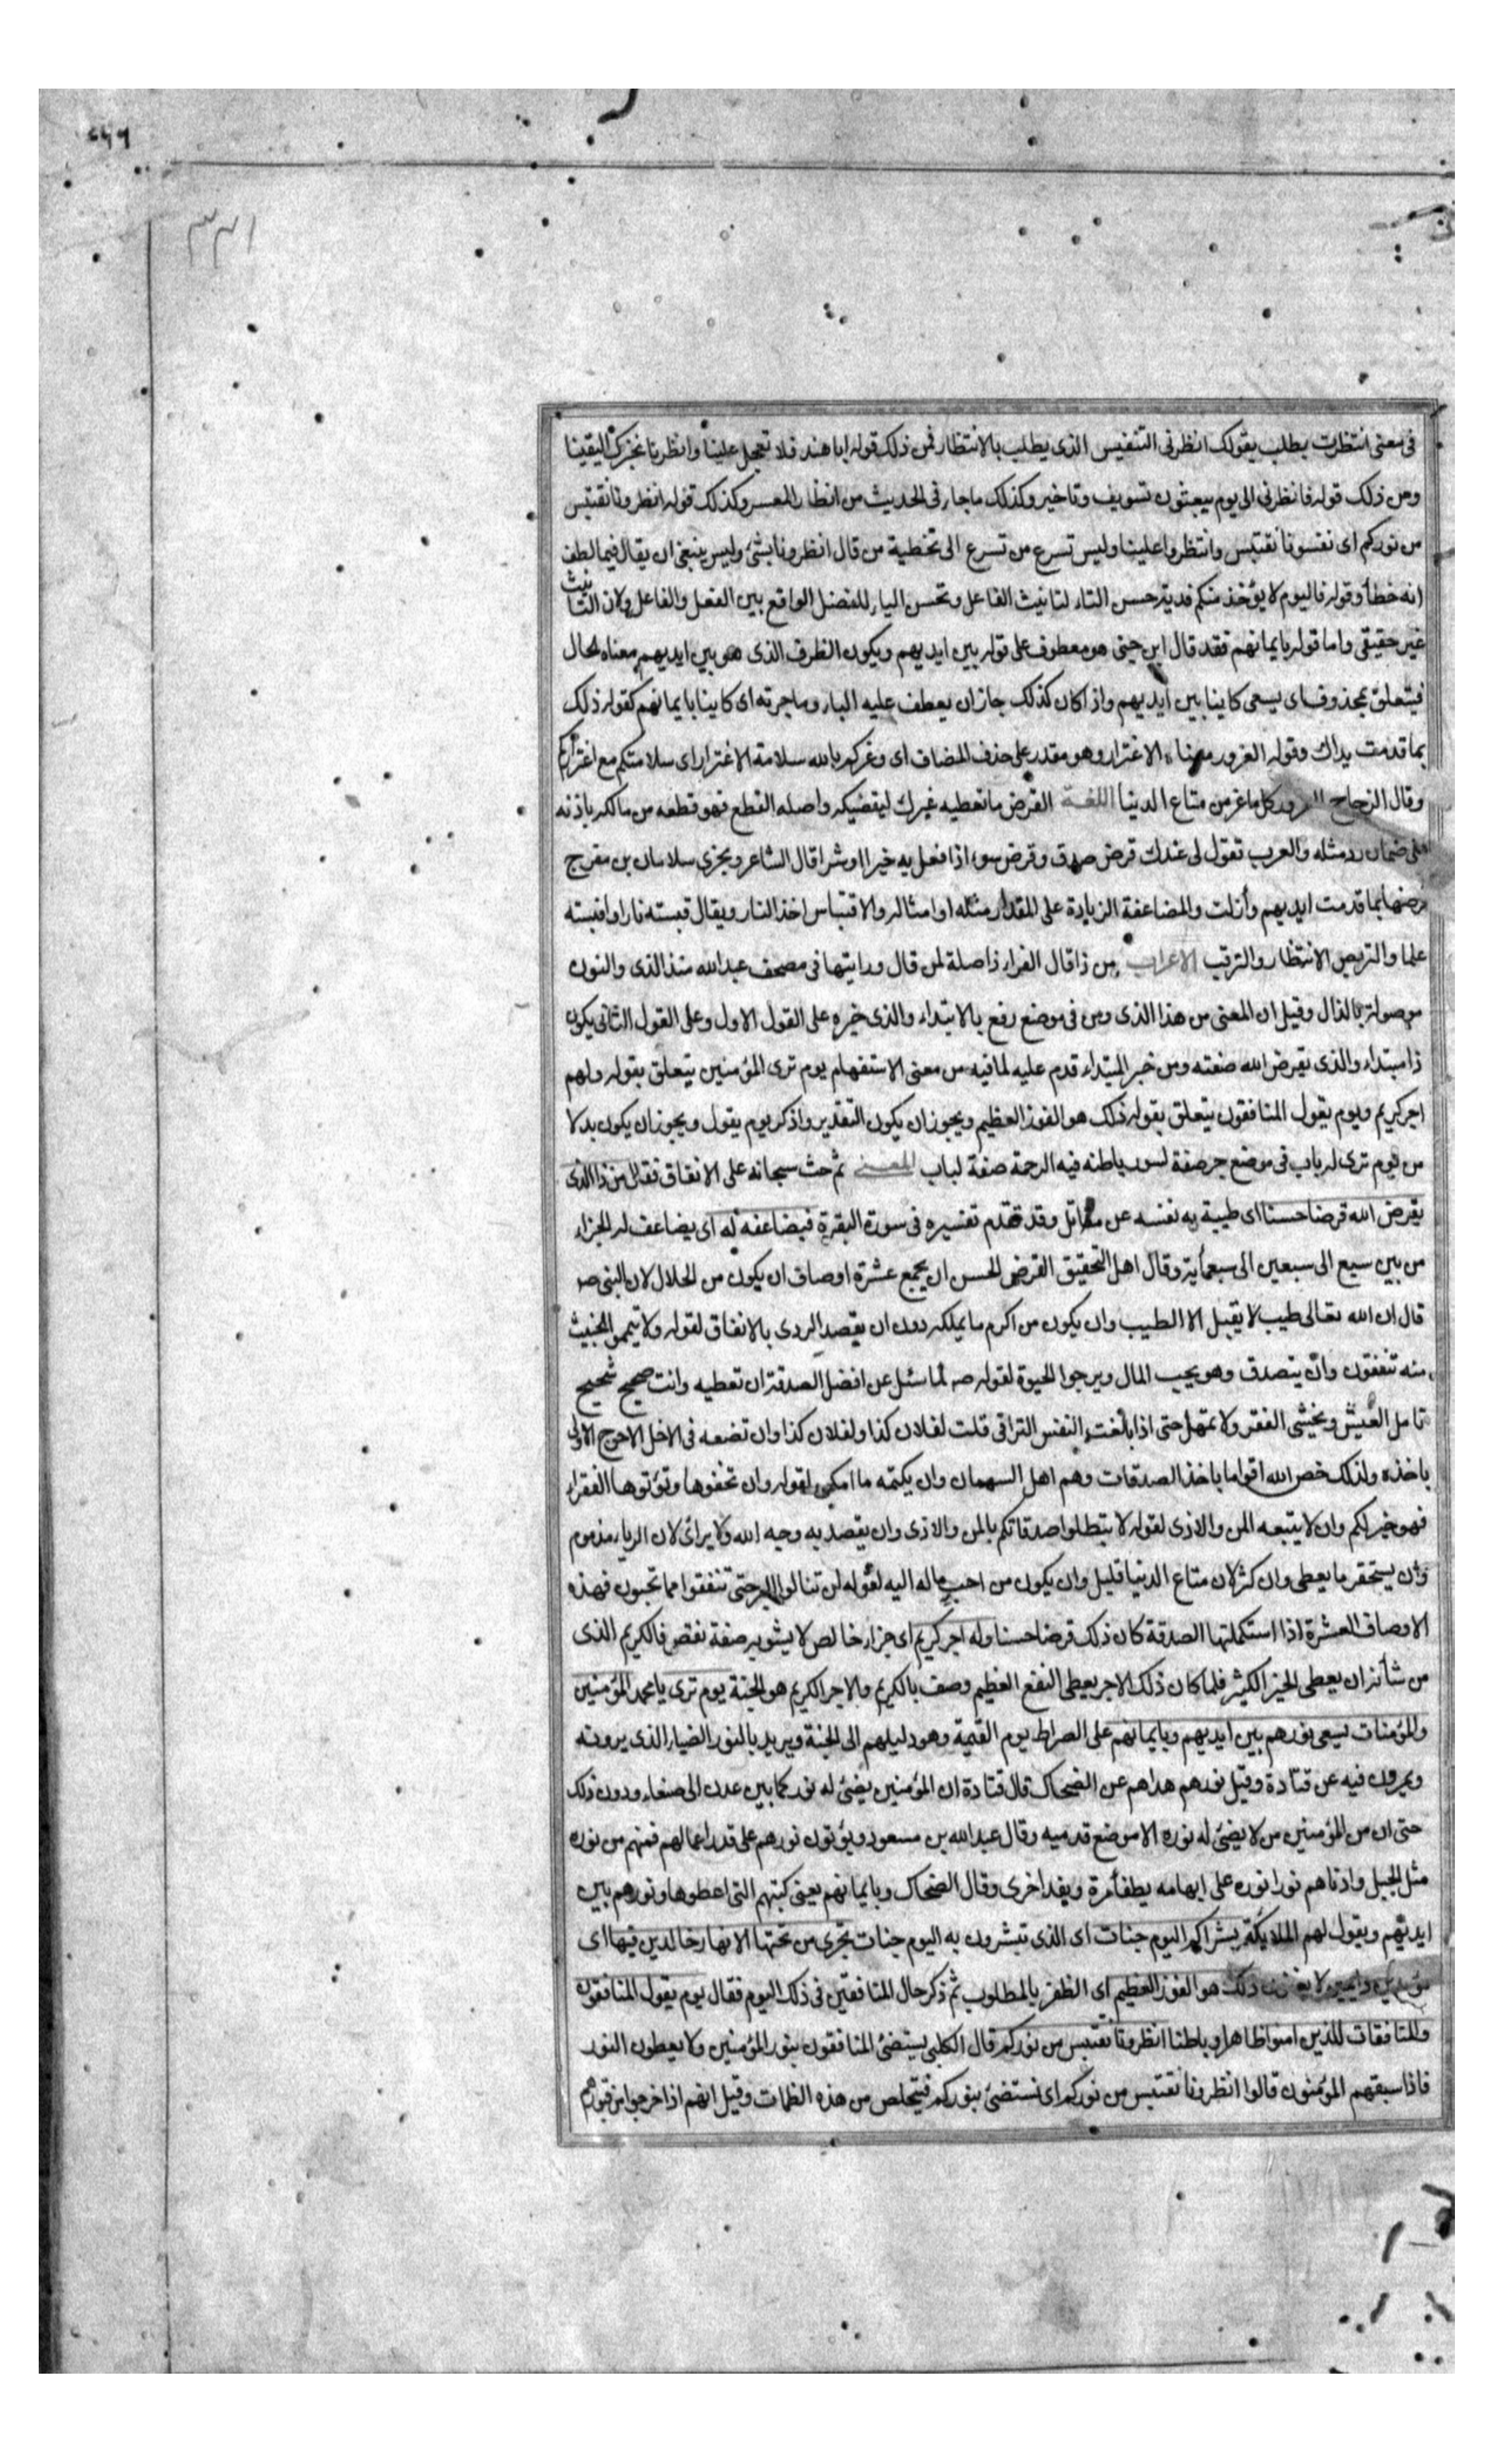 ٣٣١
فى معنى انتظرت يطلب بقولك انظرنى التنفيس الذى يطلب بالانتظار فمن ذلك قوله ابا هند فلا تعجل علينا وانظرنا نخبرك اليقينا
ومن ذلك قوله فانظرنى الى يوم يبعثون تسويف وتاخير وكذلك ماجاء فى الحديث من انظار المعسر وكذلك قوله انظرونا نقتبس
من نوركم اى نفسونا نقتبس وانتظروا علينا وليس تسرع من تسرع الى تخطية من قال انظرونا بشئ وليس ينبغى ان يقال فيما لطف
انه خطأ وقوله فاليوم لا يؤخذ منكم فدية حسن التاء لتانيث الفاعل وتحسن الياء للفصل الواقع بين الفعل والفاعل ولان التانيث
غير حقيقى واما قوله بايمانهم فقد قال ابن جنى هو معطوف على قوله بين ايديهم ويكون الظرف الذى هو بين ايديهم معناه الحال
فيتعلق بمحذوف اى يسعى كاينا بين ايديهم واذا كان كذلك جاز ان يعطف عليه الباء وما جرته اى كاينا بايمانهم كقوله ذلك
بما قدمت يداك وقوله الغرور معناه الاغترار وهو مقدر على حذف المضاف اى وغركم بالله سلامة الاغترار اى سلامتكم مع اغتراركم
وقال الزجاج الغرور كل ما غر من متاع الدنيا اللغة القرض ما تعطيه غيرك ليقضيكه واصله القطع فهو قطعه من مالكه باذنه
على ضمان رد مثله والعرب تقول لى عندك قرض صدق وقرض سوء اذا فعل به خيرا اوشرا قال الشاعر ويجزى سلامان بن مفرج
قرضها بما قدمت ايديهم وأزلت والمضاعفة الزيادة على المقدار مثله او امثاله والاقتباس اخذ النار ويقال قبسته نارا واقبسته
علما والتربص الانتظار والترقب الاعراب من ذا قال الفراء ذا صلة لمن قال ورايتها فى مصحف عبدالله منذ الذى والنون
موصولة بالذال وقيل ان المعنى من هذا الذى ومن فى موضع رفع بالابتداء والذى خبره على القول الاول وعلى القول الثانى يكون
ذا مبتداء والذى يقرض الله صفته ومن خبر المبتداء قدم عليه لما فيه من معنى الاستفهام يوم ترى المؤمنين يتعلق بقوله ولهم
اجر كريم ويوم يقول المنافقون يتعلق بقوله ذلك هو الفوز العظيم ويجوز ان يكون التقدير واذكر يوم يقول ويجوز ان يكون بدلا
من يوم ترى له باب فى موضع جر صفة لسور باطنه فيه الرحمة صفة لباب المعنى ثم حث سبحانه على الانفاق فقال من ذا الذى
يقرض الله قرضا حسنا اى طيبة به نفسه عن مقاتل وقد تقدم تفسيره فى سورة البقرة فيضاعفه له اى يضاعف له الجزاء
من بين سبع الى سبعين الى سبعمأية وقال اهل التحقيق القرض الحسن ان يجمع عشرة اوصاف ان يكون من الحلال لان النبى ص
قال ان الله تعالى طيب لا يقبل الا الطيب وان يكون من اكرم ما يملكه دون ان يقصد الردى بالانفاق لقوله ولا تيمموا الخبيث
منه تنفقون وان يتصدق وهو يحب المال ويرجوا الحيوة لقوله ص لما سئل عن افضل الصدقة ان تعطيه وانت صحيح شحيح
تامل العيش وتخشى الفقر ولا تمهل حتى اذا بلغت النفس التراقى قلت لفلان كذا ولفلان كذا وان تضعه فى الاخل الاحوج الاولى
باخذه ولذلك خص الله اقواما باخذ الصدقات وهم اهل السهمان وان يكتمه ما امكن لقوله وان تخفوها وتؤتوها الفقراء
فهو خير لكم وان لا يتبعه المن والاذى لقوله لا تبطلوا صدقاتكم بالمن والاذى وان يقصد به وجه الله ولا يرائى لان الرياء مذموم
وان يستحقر ما يعطى وان كثر لان متاع الدنيا قليل وان يكون من احب ماله اليه لقوله لن تنالوا البر حتى تنفقوا مما تحبون فهذه
الاوصاف العشرة اذا استكملتها الصدقة كان ذلك قرضا حسنا وله اجر كريم اى جزاء خالص لا يشوبه صفة نقص فالكريم الذى
من شأنه ان يعطى الخير الكثير فلما كان ذلك الاجر يعطى النفع العظيم وصف بالكريم والاجر الكريم هو الجنة يوم ترى يا محمد المؤمنين
والمؤمنات يسعى نورهم بين ايديهم وبايمانهم على الصراط يوم القيمة وهو دليلهم الى الجنة ويريد بالنور الضياء الذى يرونه
ويمرون فيه عن قتادة وقيل نورهم هداهم عن الضحاك قال قتادة ان المؤمنين يضئ له نور كما بين عدن الى صنعاء ودون ذلك
حتى ان من المؤمنين من لا يضئ له نوره الا موضع قدميه وقال عبدالله بن مسعود ويؤتون نورهم على قدر اعمالهم فمنهم من نوره
مثل الجبل وادناهم نورا نوره على ابهامه يطفأ مرة ويقد اخرى وقال الضحاك وبايمانهم يعنى كتبهم التى اعطوها ونورهم بين
ايديهم ويقول لهم الملايكة بشراكم اليوم جنات اى الذى تبشرون به اليوم جنات تجرى من تحتها الانهار خالدين فيها اى
مؤبدين دايمين لا يفنون ذلك هو الفوز العظيم اى الظفر بالمطلوب ثم ذكر حال المنافقين فى ذلك اليوم فقال يوم يقول المنافقون
والمنافقات للذين امنوا ظاهرا وباطنا انظرونا نقتبس من نوركم قال الكلبى يستضئ المنافقون بنور المؤمنين ولا يعطون النور
فاذا سبقهم المؤمنون قالوا انظرونا نقتبس من نوركم اى نستضئ بنوركم فيتخلص من هذه الظلمات وقيل انهم اذا خرجوا من قبورهم